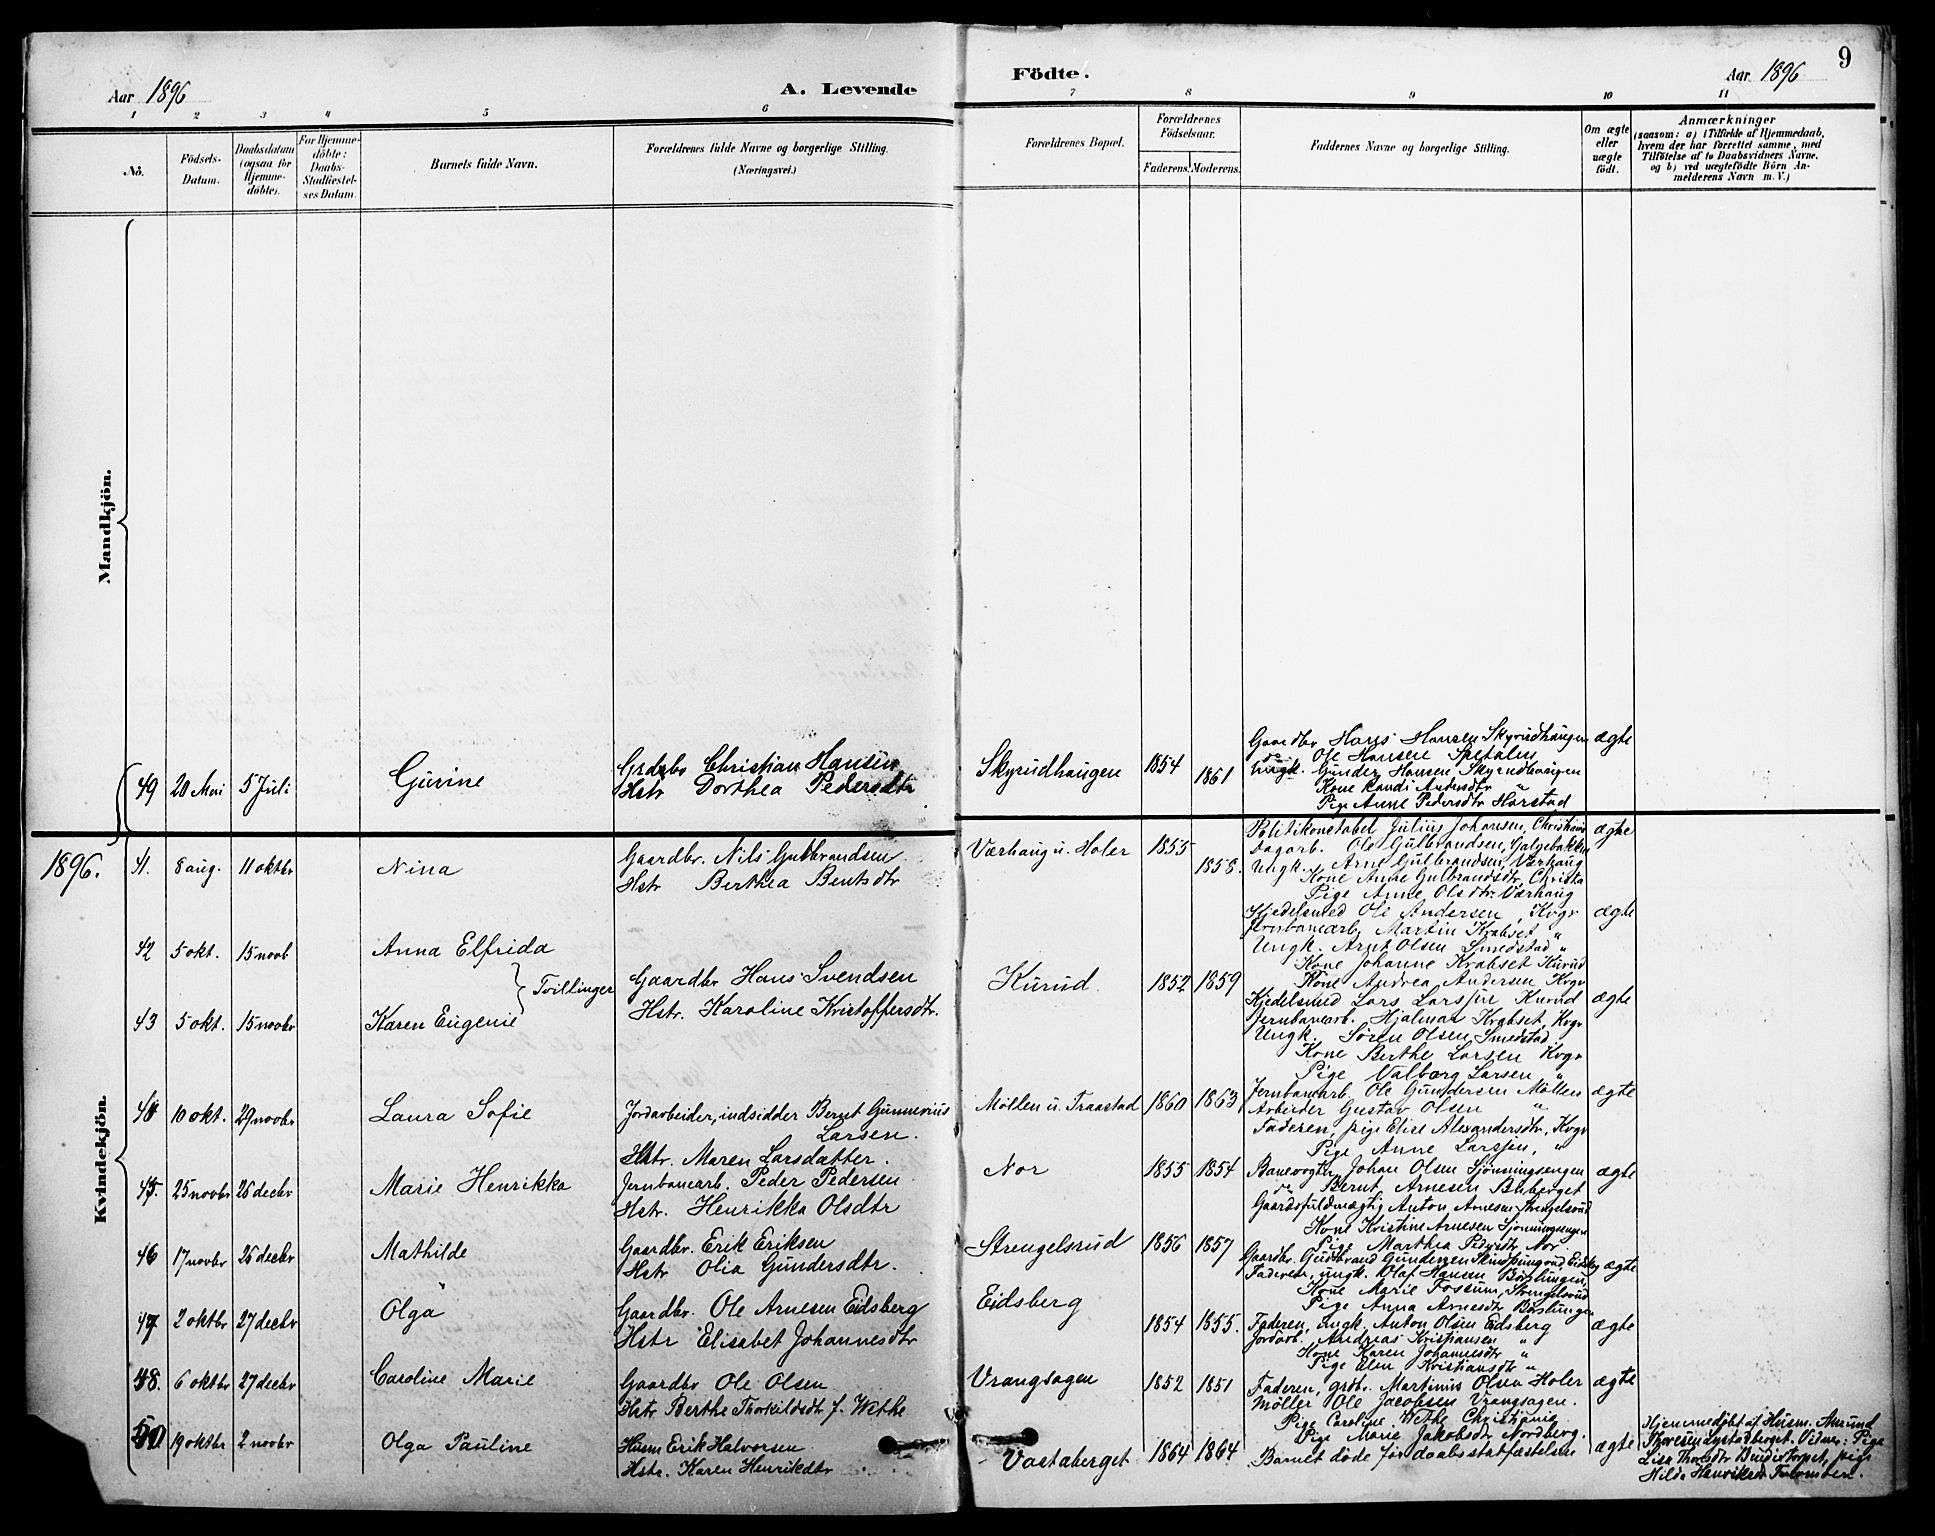 Aar 1896
A. Levende
Födte.
Aar 1896
9
1 2 3 4 5 6 7 8 9 10 11
No.
Födsels-
Datum.
Daabsdatum
(ogsaa for
Hjemme-
döbte).
For Hjemme-
döbte:
Daabs-
Stadfæstel-
ses Datum.
Barnets fulde Navn.
Forældrenes fulde Navne og borgerlige Stilling.
(Næringsvei.)
Forældrenes Bopæl.
Forældrenes
Födselsaar.
Faderens. Moderens.
Faddernes Navne og borgerlige Stilling.
Om ægte
eller
uægte
født.
Anmærkninger
(saasom: a) i Tilfælde af Hjemmedaab,
hvem der har forrettet samme, med
Tilföielse af to Daabsvidners Navne,
og b) ved uægtefödte Börn An-
melderens Navn m. V.)
Mandkjön.
49 20 Mai 5 Juli
Gurine
Grdbr Christian Hansen
Hstr Dorthea Pedersdtr
Skyrudhaugen 1854 1861
Gaardbr Hans Hansen Skyrudhaugen
do Ole Hansen Spetalen
Ungk. Gunder Hansen Skyrudhaugen
Kone Randi Andersdtr "
Pige Anne Pedersdtr Harstad
ægte
Kvindekjön.
1896.
41. 8 aug. 11 oktbr
Nina
Gaardbr. Nils Gulbrandsen
Hstr Berthea Bentsdtr
Værhaug u. Holer 1855 1858.
Politikonstabel Julius Johansen, Christiania
Dagarb. Ole Gulbrandsen, Galgebakken
Ungk. Arne Gulbrandsen, Værhaug
Kone Anne Gulbrandsdtr, Christia
Pige Anne Olsdtr. Værhaug
ægte
42 5 okt. 15 novb
Anna Elfrida
Kjedelsmed Ole Andersen, Kvgr
Jernbanearb. Martin Krabset "
Ungk. Arnt Olsen Smedstad "
Kone Johanne Krabset Kurud
Kone Andrea Andersen Kvgr
ægte
Tvillinger
Gaardbr Hans Svendsen
Hstr. Karoline Kristoffersdtr.
Kurud 1852 1859
43 5 okt. 15 novbr
Karen Eugenie
Kjedelsmed Lars Larsen Kurud
Jernbanearb. Hjalmar Krabset, Kvgr
Ungk. Søren Olsen Smedstad
Kone Berthe Larsen Kvgr
Pige Valborg Larsen "
ægte
44 10 okt. 29 novbr
Laura Sofie
Jordarbeider, indsidder Bernt Gunnerius
Larsen.
Hstr. Maren Larsdatter.
Möllen u. Traastad 1860 1863
Jernbanearb. Ole Gundersen Möllen
Arbeider Gustav Olsen "
Faderen, pige Elise Alexandersdtr, Kvgr
Pige Anne Larsen, "
ægte
45. 25 novbr 26 decbr
Marie Henrikka
Jernbanearb. Peder Pedersen
Hstr. Henrikka Olsdtr
Nor 1855 1854
Banevogter Johan Olsen Sjønningsengen
do Bernt Arnesen Buberget
Gaardsfuldmægtig Anton Arnesen Strengelsrud
Kone Kristine Arnesen Sjønningsengen
Pige Marthea Pedersdtr Nor
ægte
46 17 novbr 26 decbr
Mathilde
Gaardbr. Erik Eriksen
Hstr Olia Gundersdtr.
Strengelsrud 1856 1857
Gaardbr. Gudbrand Gundersen Skuspungrud, Eidskog
Faderen, ungk. Olaf Hansen Børslungen,
Kone Marie Fossum, Strengelsrud
Pige Anna Arnesdtr Børslungen
ægte
47 2 oktbr 27 decbr
Olga
Gaardbr. Ole Arnesen Eidsberg
Hstr Elisabet Johannesdtr
Eidsberg 1854 1855.
Faderen, ungk. Anton Olsen Eidsberg
Jordarb. Andreas Kristiansen "
Kone Karen Johannesdtr "
Pige Elen Kristiansdtr "
ægte
48. 6 oktbr 27 decbr
Caroline Marie
Gaardbr Ole Olsen
Hstr Berthe Thorkildsdtr f. Withe
Vrangsagen 1852 1851
Faderen, grdbr. Martinus Olsen Holer
Möller Ole Jacobsen Vrangsagen.
Pige Caroline Withe Christiania
Pige Marie Jakobsdtr Nordberg.
ægte
50 19 oktbr 2 novbr
Olga Pauline
Husm Erik Halvorsen
Hstr. Karen Henriksdtr
Vastaberget 1864 1864
Barnet döde før daabsstadfæstelsen
ægte
Hjemmedøbt af Husm. Amund
Vidner: Pige
Lisa Thorsdtr pige
Hilda Henriksdtr